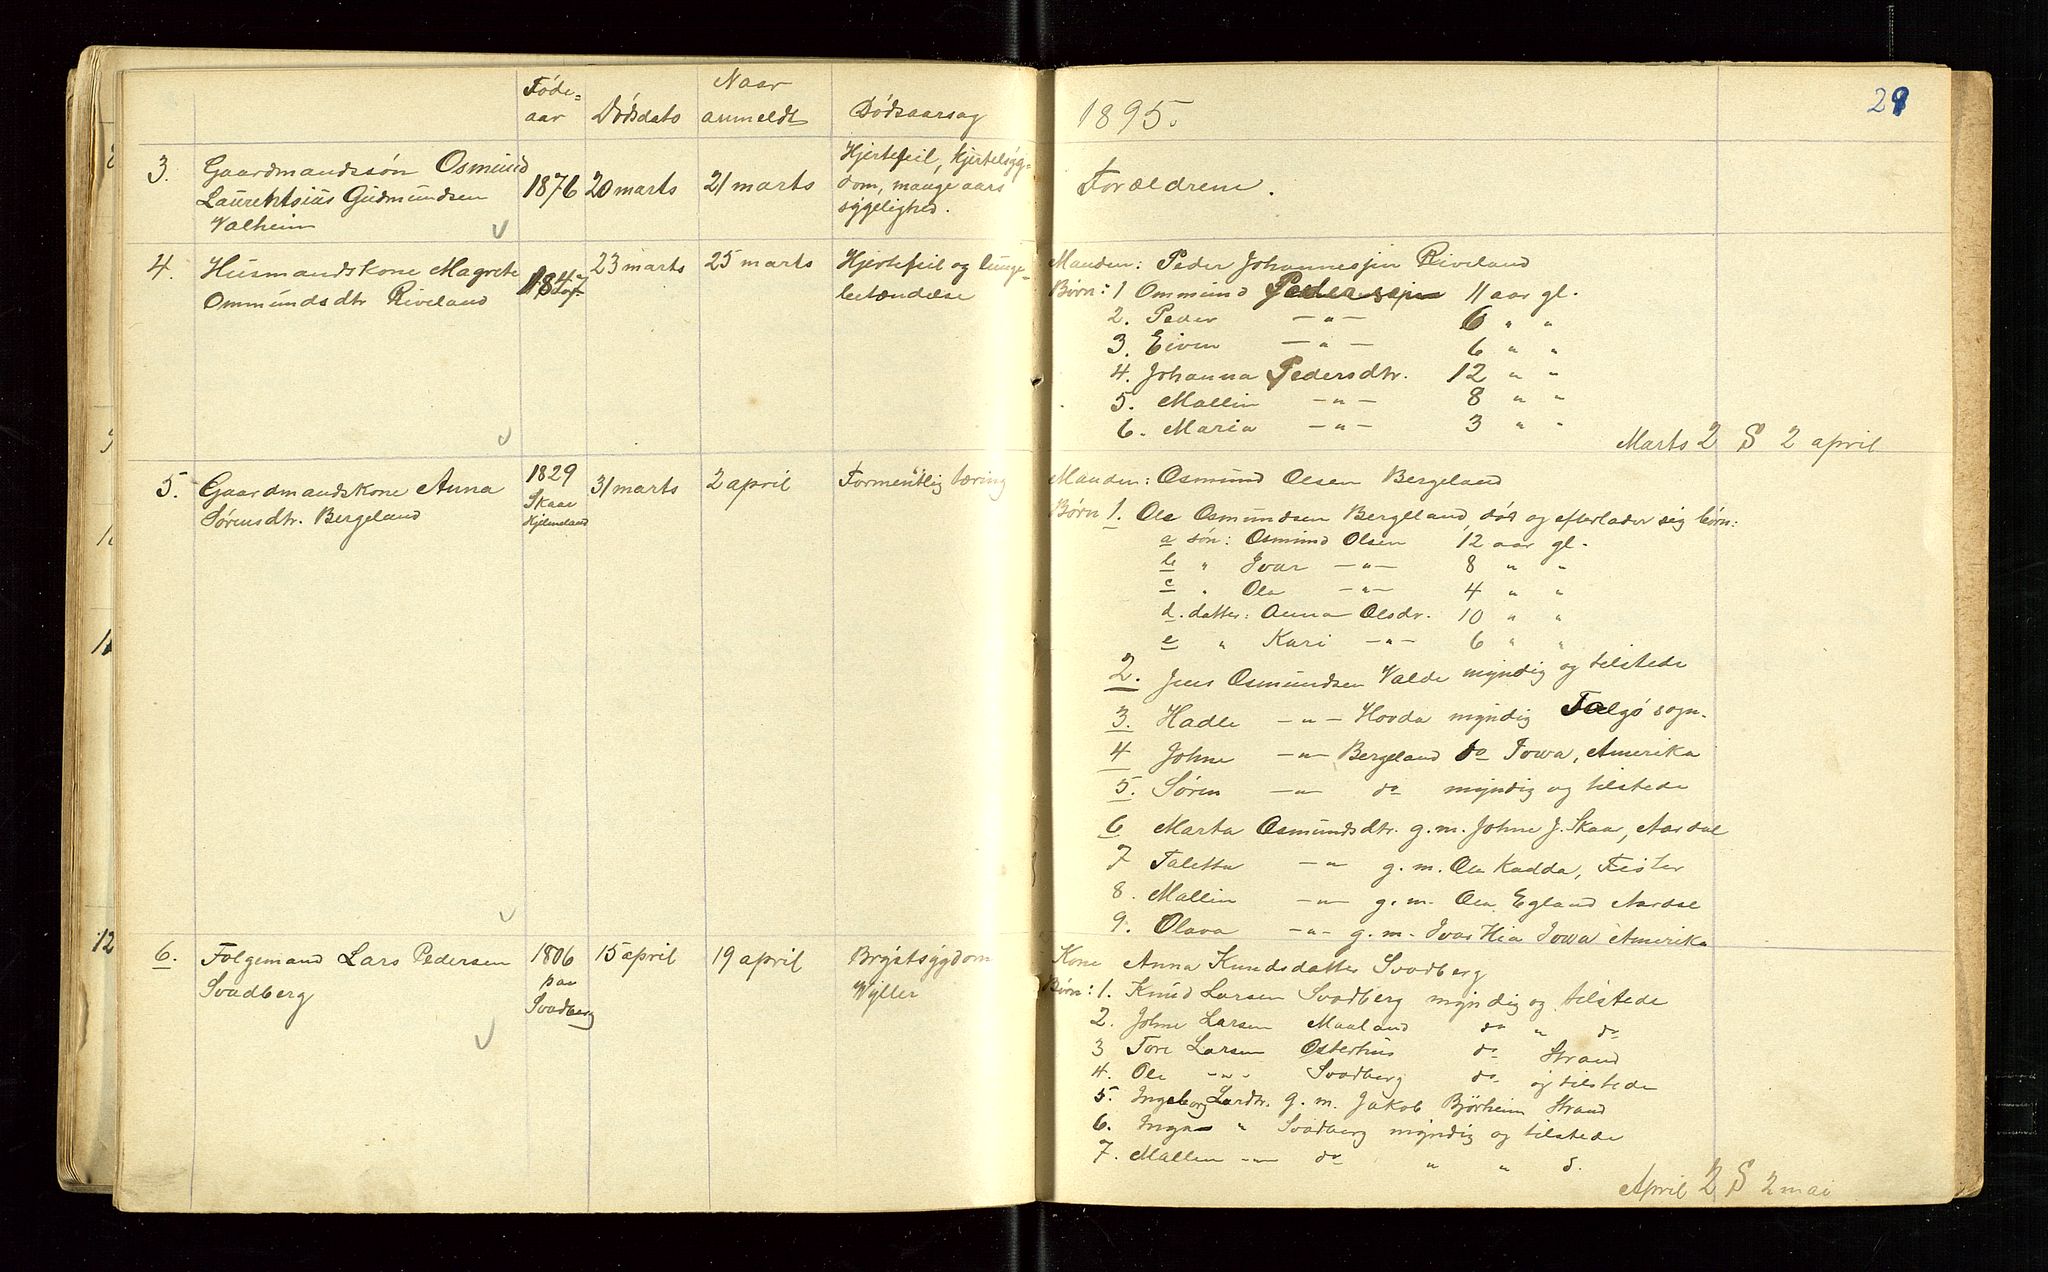 Føde=
aar
Dødsdato
Naar
anmeldt
Dødsaarsag
3. Gaardmandssøn Osmund
Laurentsius Gudmundsen
Valheim
1876
20 marts
21 marts
Hjertefeil, kjertelsyg-
dom, mange aars
sygelighed.
4. Husmandskone Magrete
Ommundsdtr Riveland
1847
23 marts
25 marts
Hjertefeil og lunge-
betændelse
5. Gaardmandskone Anna
Sørensdtr. Bergeland
1829
Skaar
Hjelmeland
31 marts
2 april
Formentlig tæring
6. Folgemand Lars Pedersen
Svadberg
1806
paa
Svadberg
15 april
19 april
Brystsygdom
Vyller
1895.
28
Forældrene.
Manden: Peder Johannessen Riveland
Børn: 1 Ommund Pedersen 11 aar gl.
2. Peder — " — 6 " "
3. Eiven — " — 6 " "
4. Johanna Pedersdtr. 12 " "
5. Mallin — " — 8 " "
6. Maria — " — 3 " "
Marts 2 S 2 april
Manden: Osmund Olsen Bergeland
Børn 1. Ole Osmundsen Bergeland, død og efterlader sig børn:
a søn: Osmund Olsen 12 aar gl.
b " Ivar — " — 8 " "
c " Ole — " — 4 " "
d. datter: Anna Olsdr. 10 " "
e " Kari — " — 6 " "
2. Jens Osmundsen Valde myndig og tilstede
3. Hadle — " — Hovda myndig Talgø sogn.
4 Johne — " — Bergeland do Iowa, Amerika
5. Søren — " — do myndig og tilstede
6 Marta Osmundsdtr. g. m. Johne J. Skaar, Aardal
7 Taletta — " — g. m. Ola Kadda, Fister
8. Mallin — " — g. m. Ola Egland Aardal
9. Olava — " — g. m. Ivar Hia Iowa Amerika
Kone Anna Knudsdatter Svadberg
Børn: 1. Knud Larsen Svadberg myndig og tilstede
2. Johne Larsen Maaland do " do
3 Tore Larsen Østerhus do Strand
4. Ole " " Svadberg do og tilstede
5. Ingeborg Larsdtr. g. m. Jakob Bjørheim Strand
6. Inga " Svadberg myndig og tilstede
7. Mallin — " — do " " d.
April 2 S 2 mai
12